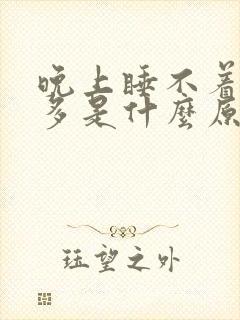 晚上睡不着
多是什麼原
珏望之外